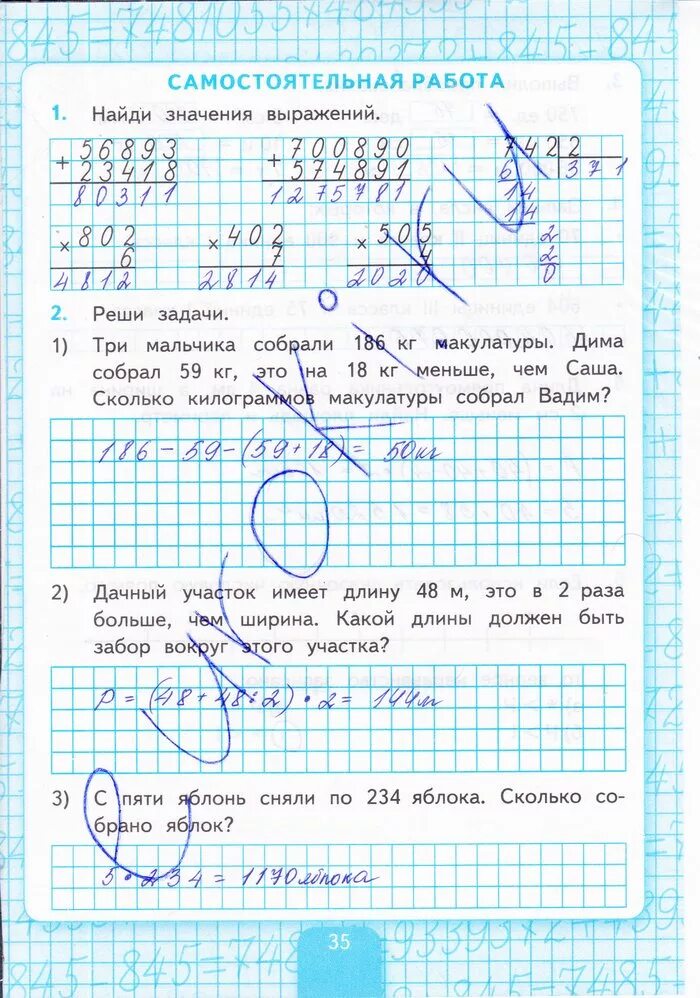 САМОСТОЯТЕЛЬНАЯ РАБОТА
1. Найди значения выражений.
+ 56893 + 700890 7422
23418 574891 6 371
80311 1275781 14
14
× 802 × 402 × 505 2
6 7 4 2
4812 2814 2020 0
2. Реши задачи.
1) Три мальчика собрали 186 кг макулатуры. Дима
собрал 59 кг, это на 18 кг меньше, чем Саша.
Сколько килограммов макулатуры собрал Вадим?
186 - 59 - (59 + 18) = 50кг
2) Дачный участок имеет длину 48 м, это в 2 раза
больше, чем ширина. Какой длины должен быть
забор вокруг этого участка?
P = (48 + 48 : 2) · 2 = 144м
3) С пяти яблонь сняли по 234 яблока. Сколько со-
брано яблок?
5 · 234 = 1170 яблока
35